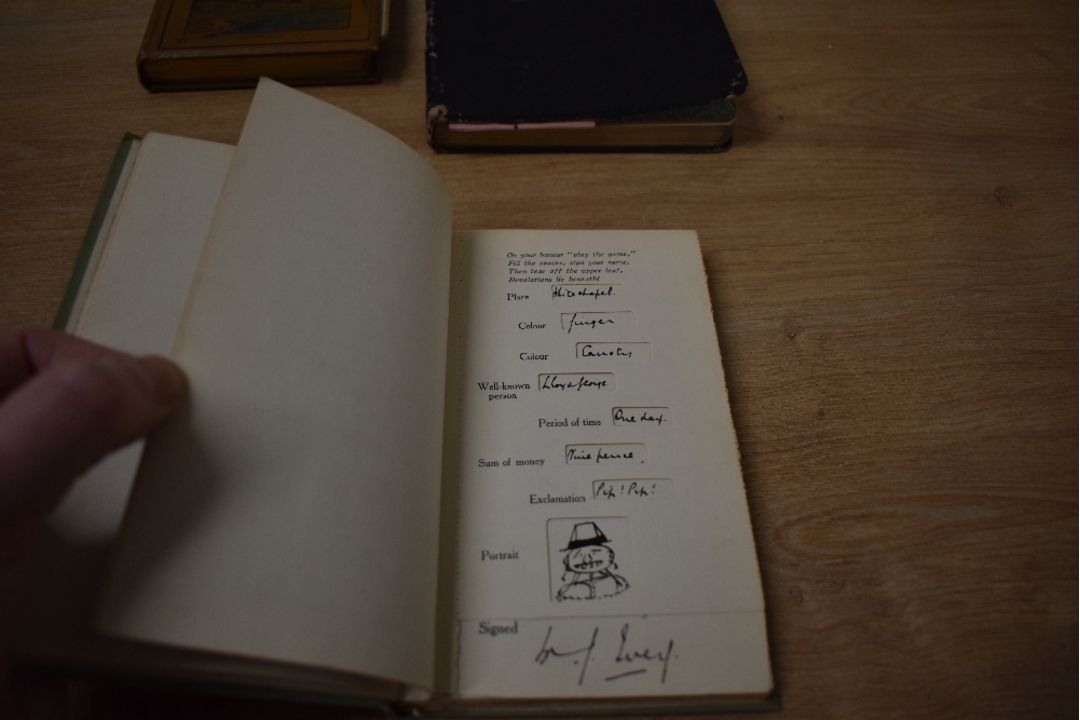 On your honour "play the game,"
Fill the spaces, sign your name,
Then tear off the upper leaf,
Revelations lie beneath!
Place Whitechapel.
Colour Ginger
Colour Carrots
Well-known person Lloyd George
Period of time One day.
Sum of money Nine pence.
Exclamation Pip! Pip!
Portrait
Signed